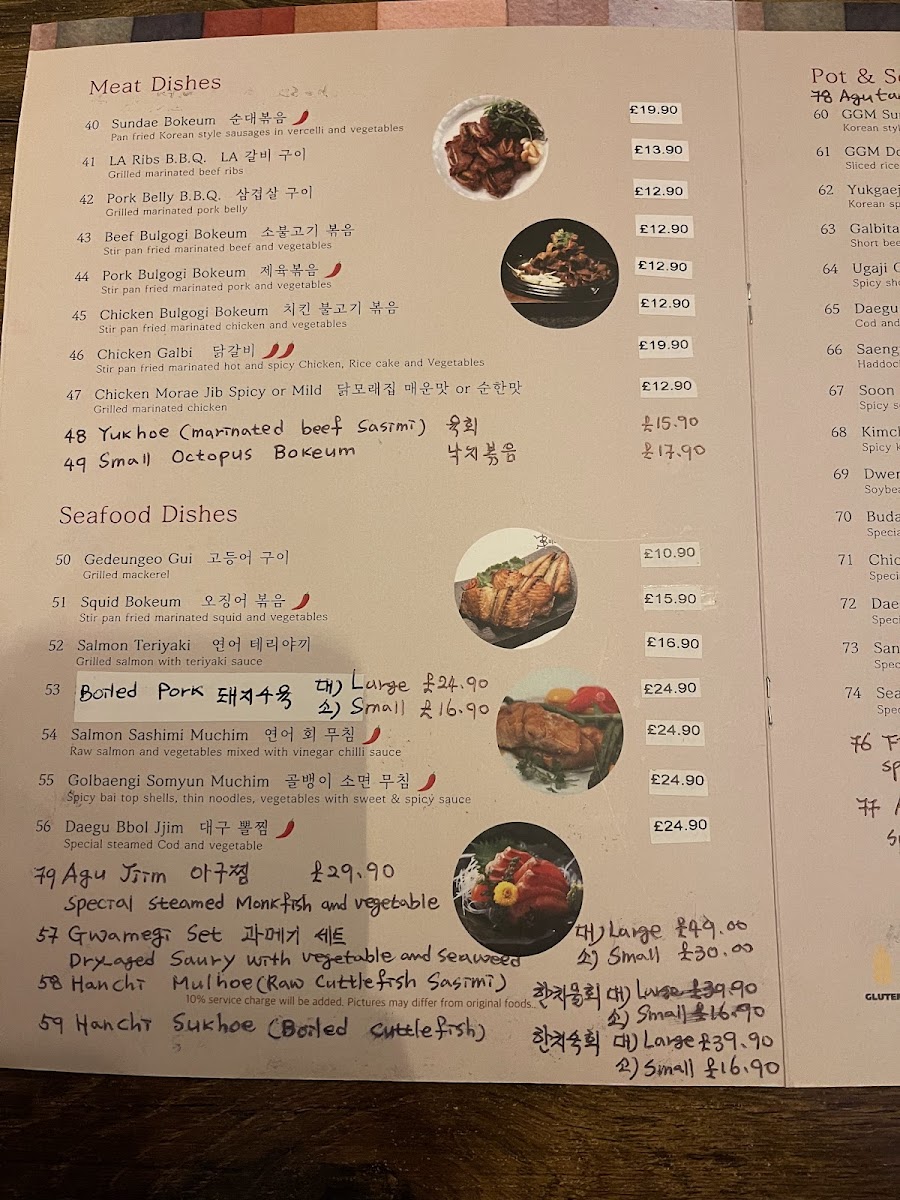 Meat Dishes
40 Sundae Bokeum 순대볶음 £19.90
Pan fried Korean style sausages in vercelli and vegetables
41 LA Ribs B.B.Q. LA 갈비 구이 £13.90
Grilled marinated beef ribs
42 Pork Belly B.B.Q. 삼겹살 구이 £12.90
Grilled marinated pork belly
43 Beef Bulgogi Bokeum 소불고기 볶음 £12.90
Stir pan fried marinated beef and vegetables
44 Pork Bulgogi Bokeum 제육볶음 £12.90
Stir pan fried marinated pork and vegetables
45 Chicken Bulgogi Bokeum 치킨 불고기 볶음 £12.90
Stir pan fried marinated chicken and vegetables
46 Chicken Galbi 닭갈비 £19.90
Stir pan fried marinated hot and spicy Chicken, Rice cake and Vegetables
47 Chicken Morae Jib Spicy or Mild 닭모래집 매운맛 or 순한맛 £12.90
Grilled marinated chicken
48 Yukhoe (marinated beef Sasimi) 육회 £15.90
49 Small Octopus Bokeum 낙지볶음 £17.90
Seafood Dishes
50 Gedeungeo Gui 고등어 구이 £10.90
Grilled mackerel
51 Squid Bokeum 오징어 볶음 £15.90
Stir pan fried marinated squid and vegetables
52 Salmon Teriyaki 연어 테리야끼 £16.90
Grilled salmon with teriyaki sauce
53 Boiled Pork 돼지수육 대) Large £24.90 £24.90
소) Small £16.90
54 Salmon Sashimi Muchim 연어 회 무침 £24.90
Raw salmon and vegetables mixed with vinegar chilli sauce
55 Golbaengi Somyun Muchim 골뱅이 소면 무침 £24.90
Spicy bai top shells, thin noodles, vegetables with sweet & spicy sauce
56 Daegu Bbol Jjim 대구 뽈찜 £24.90
Special steamed Cod and vegetable
79 Agu Jjim 아구찜 £29.90
Special steamed Monkfish and vegetable
57 Gwamegi Set 과메기 세트 대) Large £49.00
Dry aged Saury with vegetable and seaweed 소) Small £30.00
58 Hanchi Mulhoe (Raw Cuttlefish Sasimi) 한치물회 대) Large £39.90
10% service charge will be added. Pictures may differ from original foods. 소) Small £16.90
59 Hanchi Sukhoe (Boiled cuttlefish) 한치숙회 대) Large £39.90
소) Small £16.90
Pot &
78 Agu
60 GGM
Korean
61 GGM
Sliced rice
62
Korean
63
Short
64 Ugaji
Spicy
65 Daegu
Cod and
66
67 Soon
Spicy
68
Spicy
69
70
71
72
73
74
76
77